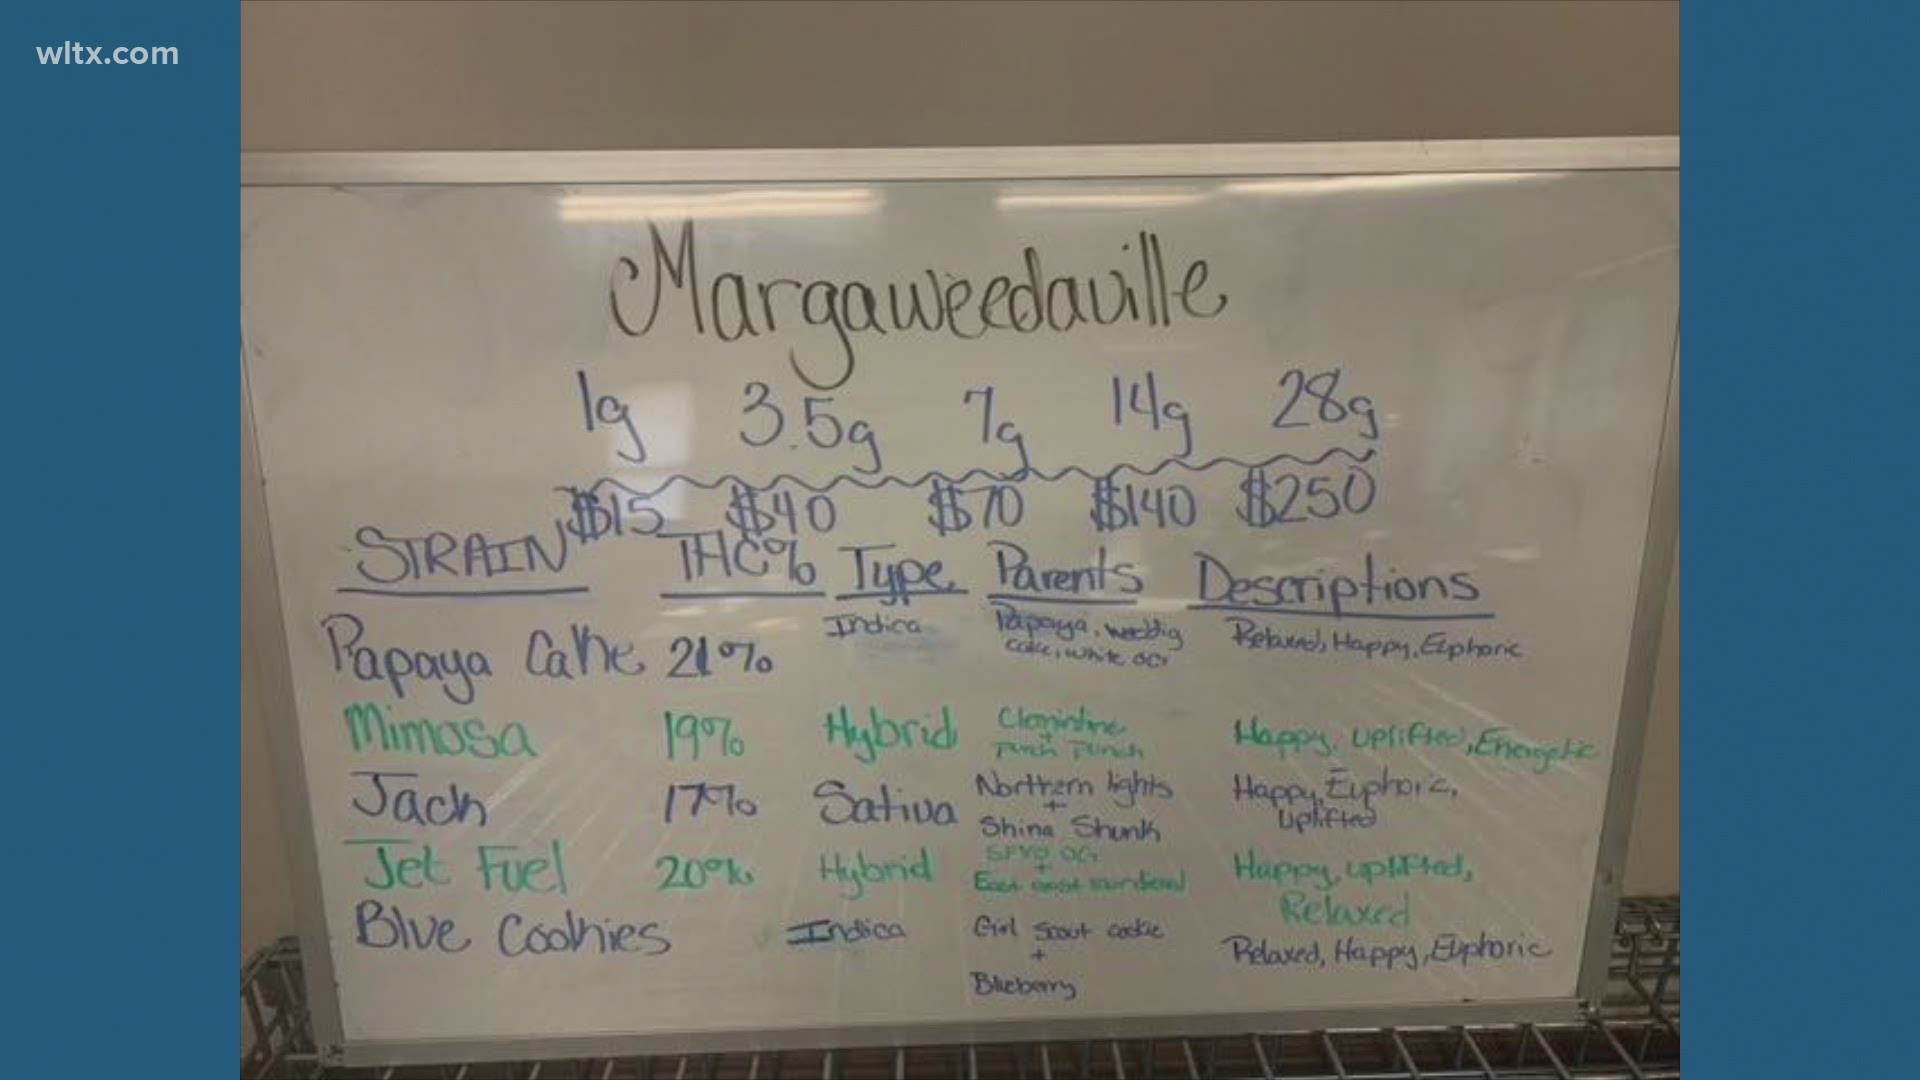 wltx.com
Margaweedaville
1g 3.5g 7g 14g 28g
$15 $40 $70 $140 $250
STRAIN THC% Type Parents Descriptions
Papaya Cake 21% Indica Papaya, Relaxed, Happy, Euphoric
cake, white OG
Mimosa 19% Hybrid Happy, uplifted, Energetic
+
Punch
Jack 17% Sativa Northern lights Happy, Euphoric,
+ uplifted
Shina Skunk
Jet Fuel 20% Hybrid OG Happy, uplifted,
+
East coast Relaxed
Blue Cookies Indica Girl Scout cookie Relaxed, Happy, Euphoric
+
Blueberry